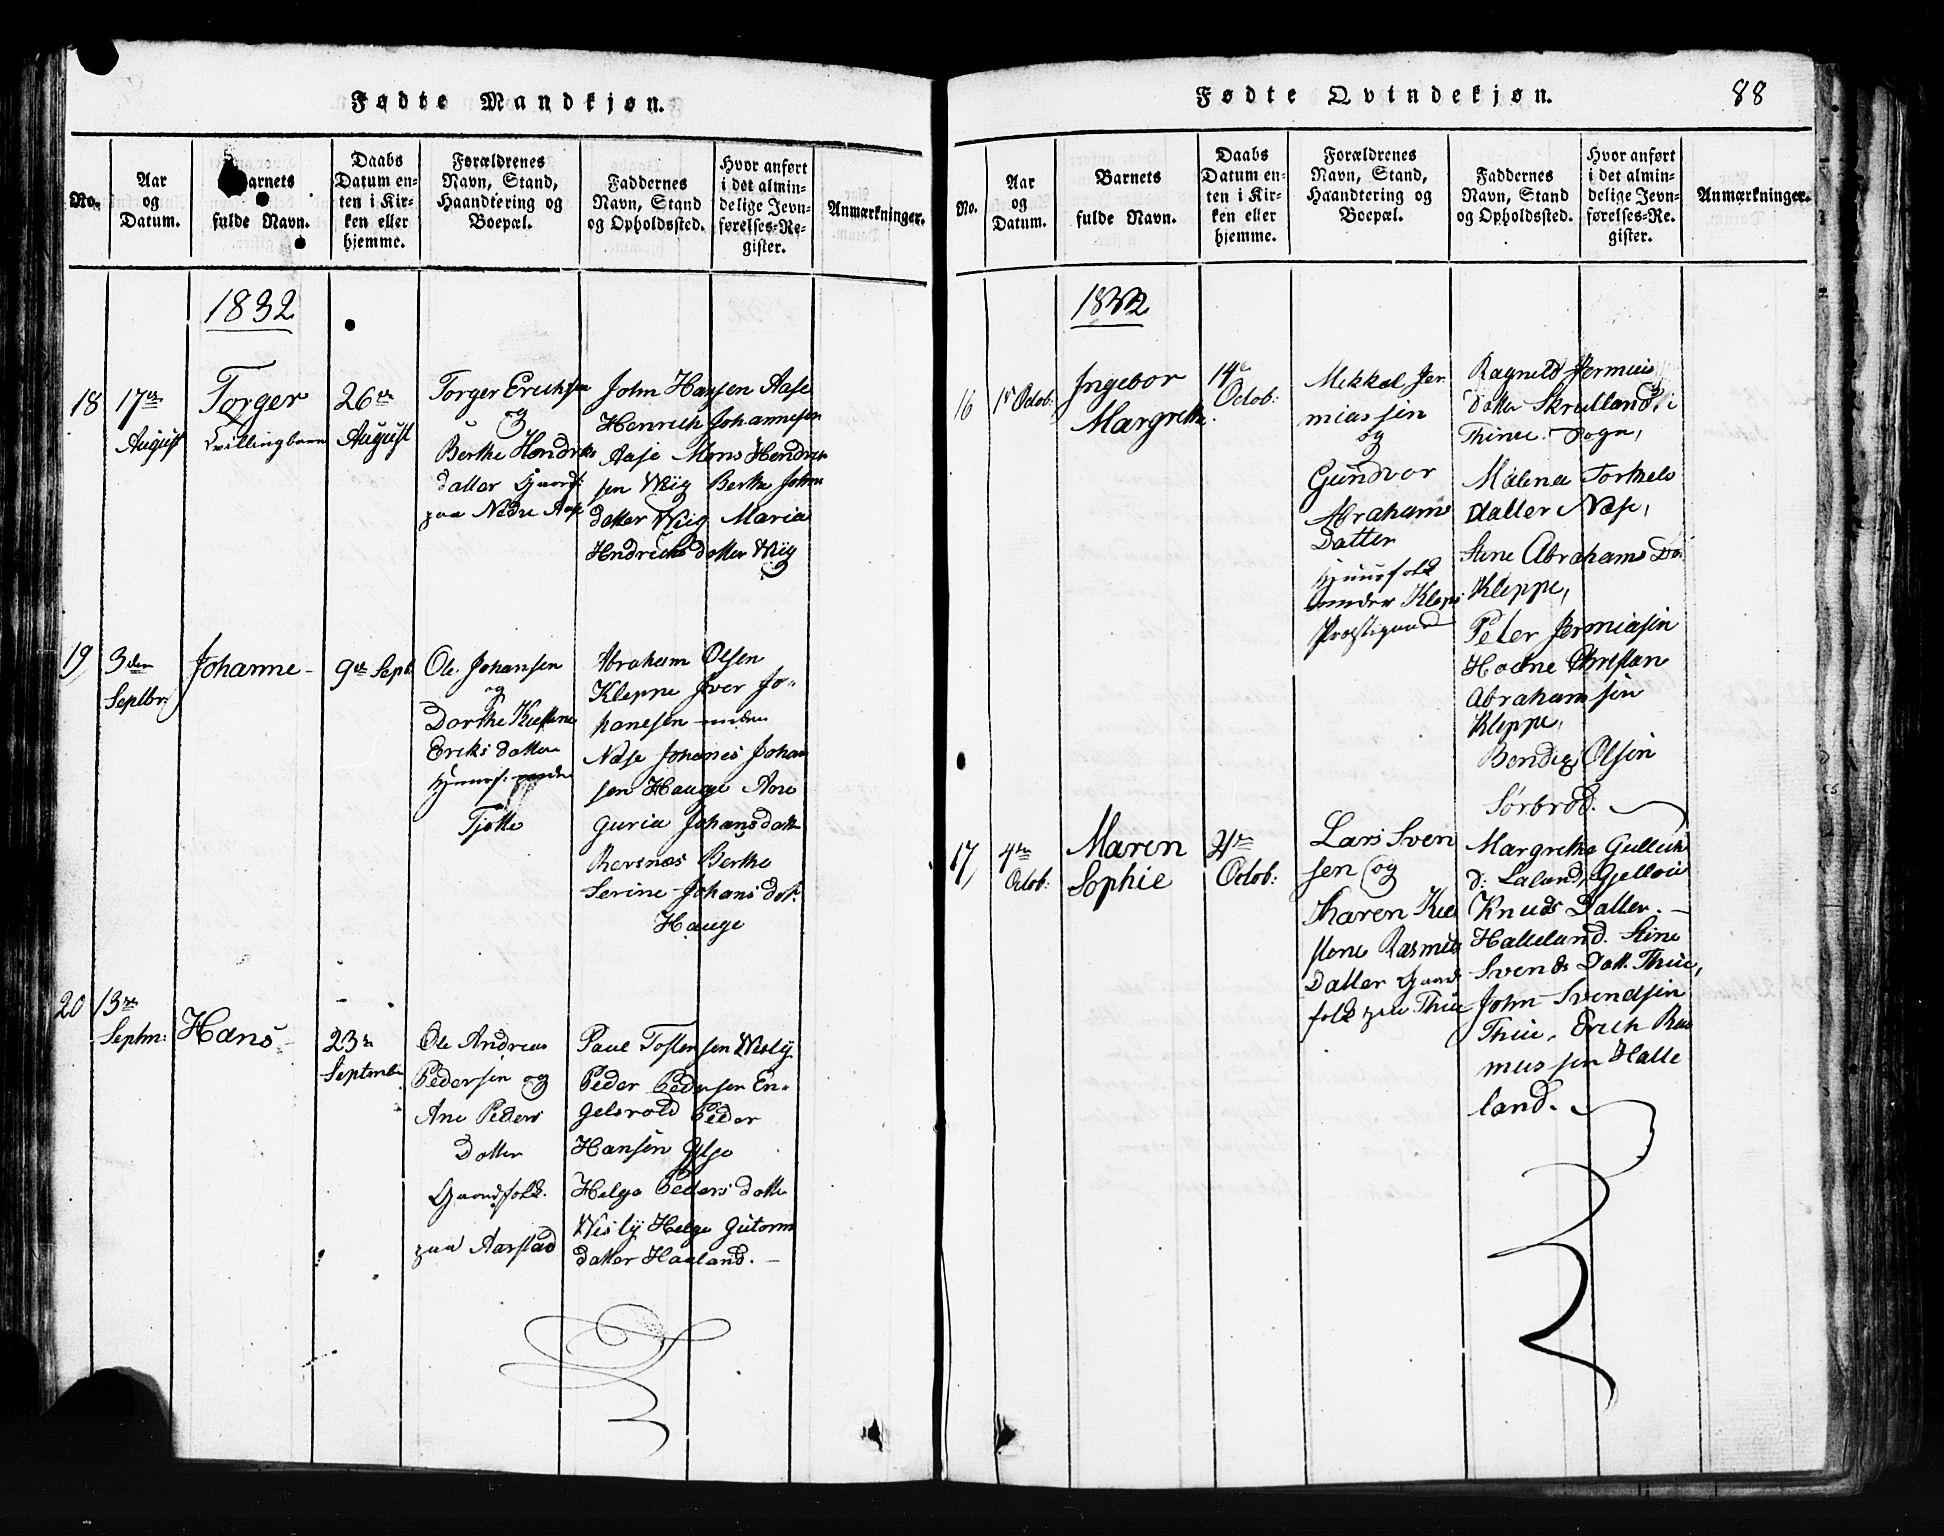 Fødte Mandkjøn.
No.
Aar
og
Datum.
Barnets
fulde Navn.
Daabs
Datum en-
ten i Kir-
ken eller
hjemme.
Forældrenes
Navn, Stand,
Haandtering og
Boepæl.
Faddernes
Navn, Stand
og Opholdssted.
Hvor anført
i det almin-
delige Jevn-
førelses-Re-
gister.
Anmærkninger.
1832
18
17de
August
Torger
Tvillingbarn
26de
August
Torger Erichsen
og
Berthe Hendriks
datter Gaardf:
paa Nedre Aase
John Hansen Aase
Henrich Johannesen
Aase Mons Hendrik
sen Wiig Berthe Johns
datter Wiig Maria
Hndrichs datter Wiig
19,
3den
Septbr:
Johanne
9de Septb
Ole Johansen
og
Dorthe Kirstine
Eriks datter
Huusf: under
Tjøtte
Abraham Olsen
Kleppe Iver Jo-
hanesen under
Næse Johanes Johan
sen Hauge Ane
Guria Johansdatter
Revenæs Berthe
Serine Johans dat:
Hauge
20
13de
Septm:
Hans
23de
Septmbr
Ole Andreas
Pedersen og
Ane Peders
Datter
Gaardfolk.
paa Aarstad
Paul Tostensen Wisly
Peder Pedersen En-
gelsvold Peder
Hansen
Helge Peders datter
Wisly Helge Gutorm
datter Haaland.
Fødte Qvindekjøn.
88
No.
Aar
og
Datum.
Barnets
fulde Navn.
Daabs
Datum en-
ten i Kir-
ken eller
hjemme.
Forældrenes
Navn, Stand,
Haandtering og
Boepæl.
Faddernes
Navn, Stand
og Opholdssted.
Hvor anført
i det almin-
delige Jevn-
førelses-Re-
gister.
Anmærkninger.
1832
16
1st Octob:
Ingebor
Margrethe
14de
Octob:
Mikkel Jer
miassen
og
Gundvor
Abrahams
Datter
Huusfolk
under Klepi
Præstegaard
Ragnild Jermias
datter Skrulland, i
Thime Sogn,
Malena Torkels
datter Næse,
Stine Abrahams Da:
Kleppe,
Peter Jermiasen
Hodne Christan
Abrahamsen
Kleppe,
Bendix Olsen
Sørbrød.
17,
4de
Octob:
Maren
Sophie
21de
Octob:
Lars Sven
sen og
Karen Kir
stene Rasmus
Datter Gaard
folk paa Thue
Margrethe Gullich
d: Laland, Gjellovi
Knuds Datter.
Halleland. Stine
Svends Datt. Thue,
John Svendsen
Thue, Erich Ras
mussen Halle
land.